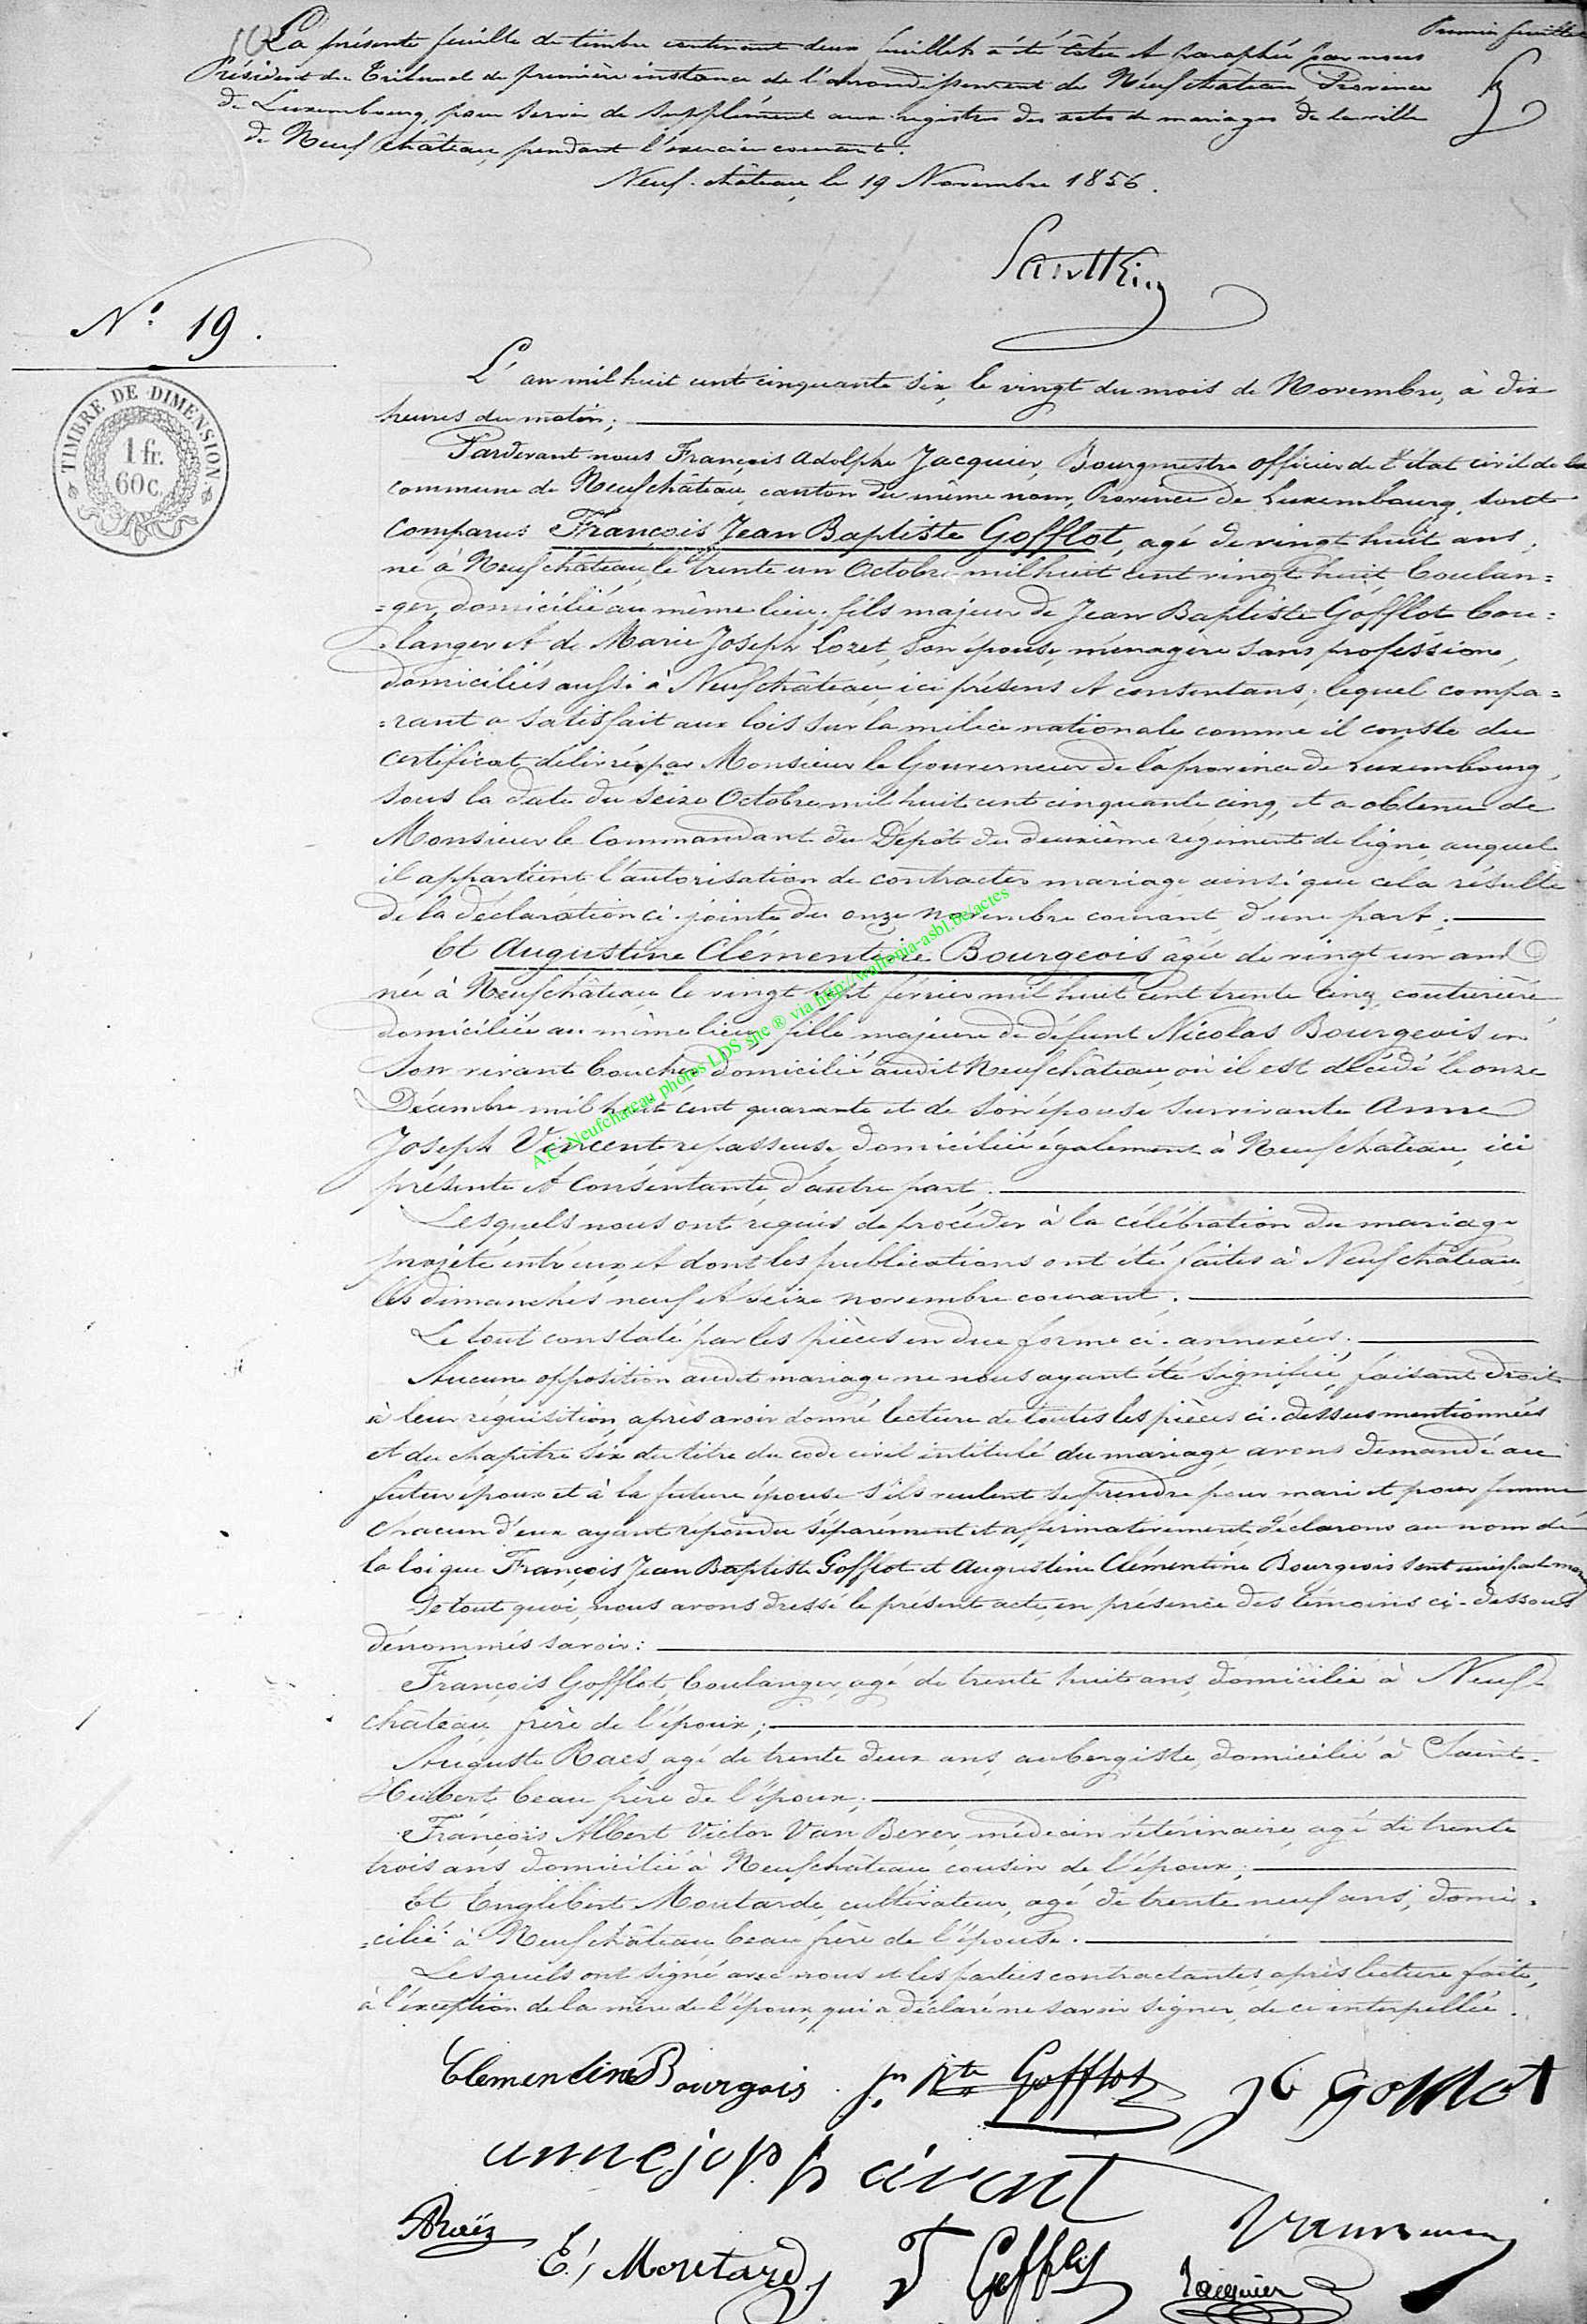 Premier feuillet
La présente feuille de timbre contenant deux feuillets a été côtée et paraphée par nous
Président du Tribunal de première instance de l'arrondissement de Neufchâteau Province
de Luxembourg, pour servir de supplément aux registres des actes de mariages de la ville
de Neufchâteau, pendant l'exercice courant.
Neuf-château, le 19 Novembre 1856.
N° 19.
TIMBRE DE DIMENSION.
1 fr.
60 c.
L'an mil huit cent cinquante six, le vingt du mois de Novembre, à dix
heures du matin;
Pardevant nous François Adolphe Jacquier, Bourgmestre officier de l'état civil de la
commune de Neufchâteau, canton du même nom, Province de Luxembourg, sont
comparus François Jean Baptiste Gofflot, agé de vingt huit ans,
né à Neufchâteau, le trente un Octobre mil huit cent vingt huit, boulan=
=ger, domicilié au même lieu, fils majeur de Jean Baptiste Gofflot bou=
=langer et de Marie Joseph Lozet, son épouse, ménagère sans profession,
domiciliés aussi à Neufchâteau, ici présens et consentans; lequel compa=
=rant a satisfait aux lois sur la milice nationale comme il conste du
certificat délivré par Monsieur le Gouverneur de la province de Luxembourg,
sous la date du seize Octobre mil huit cent cinquante cinq, et a obtenu de
Monsieur le Commandant du Dépôt du deuxième régiment de ligne auquel
il appartient l'autorisation de contracter mariage ainsi que cela résulte
de la déclaration ci-jointe du onze novembre courant, d'une part;
Et Augustine Clémentine Bourgeois âgée de vingt un ans
née à Neufchâteau le vingt sept février mil huit cent trente cinq, couturière
domiciliée au même lieu, fille majeure de défunt Nicolas Bourgeois en
son vivant boucher, domicilié audit Neufchâteau, où il est décédé le onze
Décembre mil huit cent quarante et de son épouse survivante Anne
Joseph Vincent repasseuse, domiciliée également à Neufchâteau, ici
présente et consentante, d'autre part.
Lesquels nous ont requis de procéder à la célébration du mariage
projeté entr'eux, et dont les publications ont été faites à Neufchâteau
les dimanches neuf et seize novembre courant.
Le tout constaté par les pièces en due forme ci-annexées.
Aucune opposition audit mariage ne nous ayant été signifiée, faisant droit
à leur réquisition, après avoir donné lecture de toutes les pièces ci-dessus mentionnées
et du chapitre six du titre du code civil intitulé du mariage, avons demandé au
futur époux et à la future épouse s'ils veulent se prendre pour mari et pour femme
chacun d'eux ayant répondu séparément et affirmativement, déclarons au nom de
la loi que François Jean Baptiste Gofflot et Augustine Clémentine Bourgeois sont unis par le
De tout quoi, nous avons dressé le présent acte, en présence des témoins ci-dessous
dénommés savoir:
François Gofflot, boulanger, agé de trente huit ans, domicilié à Neuf-
château, frère de l'époux;
Auguste Raes, agé de trente deux ans, aubergiste, domicilié à Saint-
Hubert, beau frère de l'époux;
François Albert Victor Van Bever, médecin vétérinaire, agé de trente
trois ans, domicilié à Neufchâteau, cousin de l'époux;
Et Englebert Moutarde, cultivateur, agé de trente neuf ans, domi=
=cilié à Neufchâteau, beau frère de l'épouse.
Lesquels ont signé avec nous et les parties contractantes, après lecture faite,
à l'exception de la mère de l'époux, qui a déclaré ne savoir signer, de ce interpellée.
Clementine Bourgois Jn Bte Gofflot Gofflot
E. Moutarde F Gofflot
Jacquier
A.C. Neufchateau photos LDS site ® via http://wallonia-asbl.be/actes